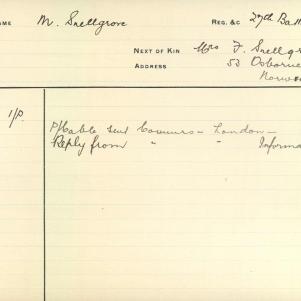 NAME M. Snellgrove REG. &c 27th Batt
NEXT OF KIN Mrs F. Snellgr
ADDRESS 53 Osborne
Norwo
1/P. P/Cable sent Commrs – London –
Reply from " " Informa